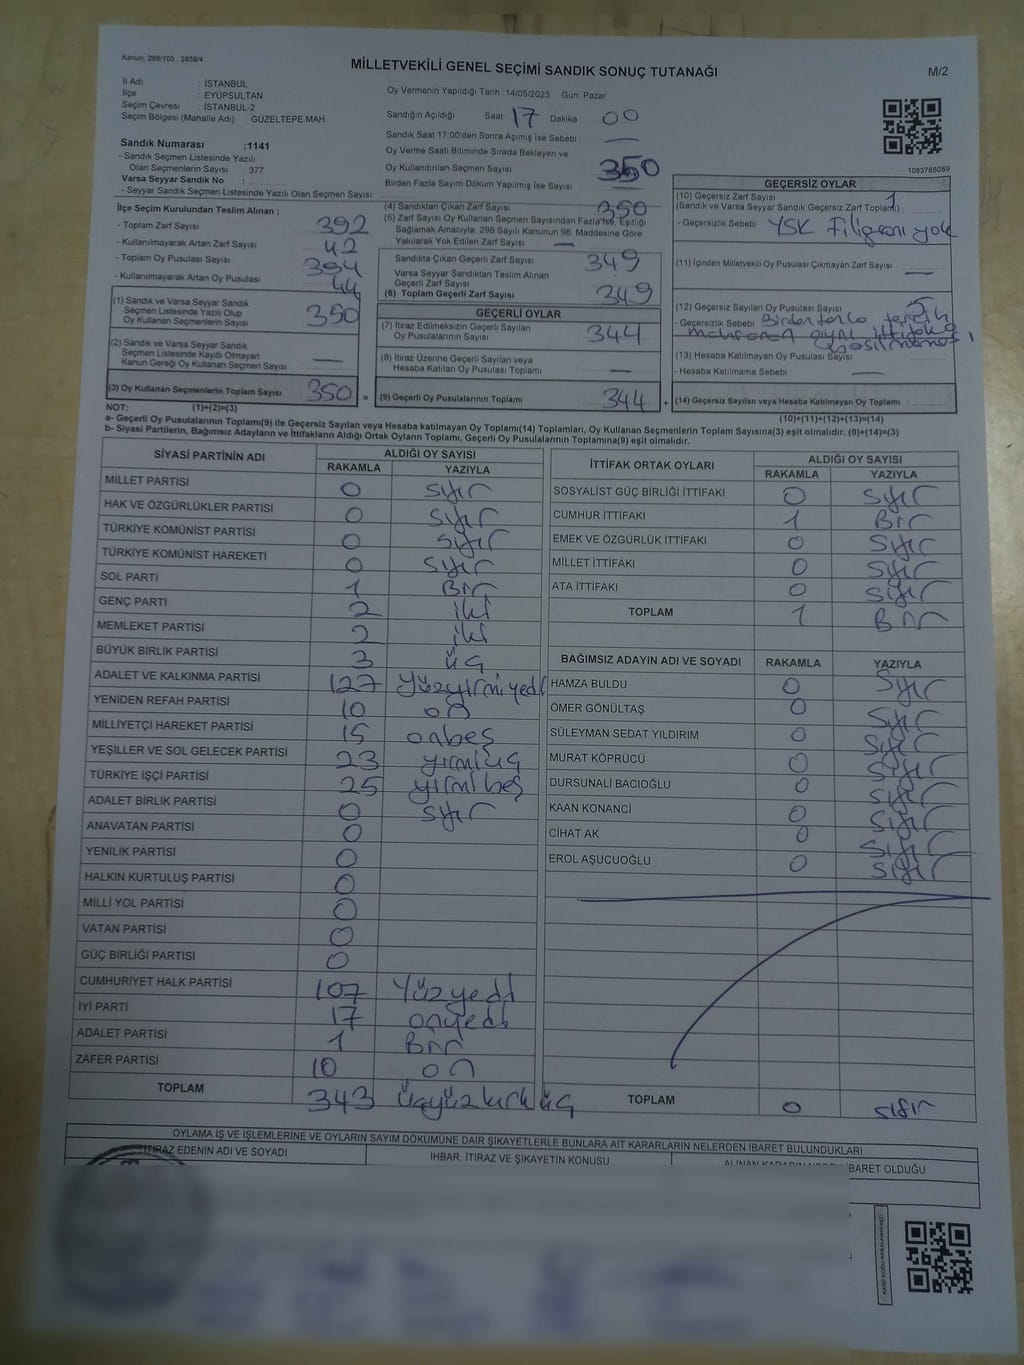 Kanun, 298/105 , 2839/4
MİLLETVEKİLİ GENEL SEÇİMİ SANDIK SONUÇ TUTANAĞI
M/2
İl Adı : İSTANBUL
İlçe : EYÜPSULTAN
Seçim Çevresi : İSTANBUL-2
Seçim Bölgesi (Mahalle Adı) : GÜZELTEPE MAH.
Sandık Numarası :1141
- Sandık Seçmen Listesinde Yazılı
Olan Seçmenlerin Sayısı : 377
Varsa Seyyar Sandık No :
- Seyyar Sandık Seçmen Listesinde Yazılı Olan Seçmen Sayısı:
Oy Vermenin Yapıldığı Tarih :14/05/2023 Gün: Pazar
Sandığın Açıldığı Saat: 17 Dakika : 00
Sandık Saat 17:00'den Sonra Açılmış İse Sebebi : —
Oy Verme Saati Bitiminde Sırada Bekleyen ve
Oy Kullandırılan Seçmen Sayısı : 350
Birden Fazla Sayım Döküm Yapılmış İse Sayısı : —
1083788089
İlçe Seçim Kurulundan Teslim Alınan ;
- Toplam Zarf Sayısı : 392
- Kullanılmayarak Artan Zarf Sayısı : 42
- Toplam Oy Pusulası Sayısı : 394
- Kullanılmayarak Artan Oy Pusulası : 44
(1) Sandık ve Varsa Seyyar Sandık
Seçmen Listesinde Yazılı Olup
Oy Kullanan Seçmenlerin Sayısı : 350
(2) Sandık ve Varsa Seyyar Sandık
Seçmen Listesinde Kayıtlı Olmayan
Kanun Gereği Oy Kullanan Seçmen Sayısı : —
(3) Oy Kullanan Seçmenlerin Toplam Sayısı : 350 =
(4) Sandıktan Çıkan Zarf Sayısı : 350
(5) Zarf Sayısı Oy Kullanan Seçmen Sayısından Fazla İse, Eşitliği
Sağlamak Amacıyla; 298 Sayılı Kanunun 98. Maddesine Göre
Yakılarak Yok Edilen Zarf Sayısı : —
Sandıkta Çıkan Geçerli Zarf Sayısı : 349
Varsa Seyyar Sandıktan Teslim Alınan
Geçerli Zarf Sayısı :
(6) Toplam Geçerli Zarf Sayısı : 349
GEÇERLİ OYLAR
(7) İtiraz Edilmeksizin Geçerli Sayılan
Oy Pusulalarının Sayısı : 344
(8) İtiraz Üzerine Geçerli Sayılan veya
Hesaba Katılan Oy Pusulası Toplamı : —
(9) Geçerli Oy Pusulalarının Toplamı : 344 +
GEÇERSİZ OYLAR
(10) Geçersiz Zarf Sayısı 1
(Sandık ve Varsa Seyyar Sandık Geçersiz Zarf Toplamı) :
- Geçersizlik Sebebi : YSK Filigranı yok
(11) İçinden Milletvekili Oy Pusulası Çıkmayan Zarf Sayısı : —
(12) Geçersiz Sayılan Oy Pusulası Sayısı : 5
- Geçersizlik Sebebi : Birden fazla tercih
mührünün aynı ittifaka
basılması
(13) Hesaba Katılmayan Oy Pusulası Sayısı :
- Hesaba Katılmama Sebebi : —
(14) Geçersiz Sayılan veya Hesaba Katılmayan Oy Toplamı :
NOT: (1)+(2)=(3)
(10)+(11)+(12)+(13)=(14)
a- Geçerli Oy Pusulalarının Toplamı(9) ile Geçersiz Sayılan veya Hesaba katılmayan Oy Toplamı(14) Toplamları, Oy Kullanan Seçmenlerin Toplam Sayısına(3) eşit olmalıdır. (9)+(14)=(3)
b- Siyasi Partilerin, Bağımsız Adayların ve İttifakların Aldığı Ortak Oyların Toplamı, Geçerli Oy Pusulalarının Toplamına(9) eşit olmalıdır.
SİYASİ PARTİNİN ADI ALDIĞI OY SAYISI
RAKAMLA YAZIYLA
MİLLET PARTİSİ 0 sıfır
HAK VE ÖZGÜRLÜKLER PARTİSİ 0 sıfır
TÜRKİYE KOMÜNİST PARTİSİ 0 sıfır
TÜRKİYE KOMÜNİST HAREKETİ 0 sıfır
SOL PARTİ 1 Bir
GENÇ PARTİ 2 iki
MEMLEKET PARTİSİ 2 iki
BÜYÜK BİRLİK PARTİSİ 3 üç
ADALET VE KALKINMA PARTİSİ 127 yüzyirmiyedi
YENİDEN REFAH PARTİSİ 10 on
MİLLİYETÇİ HAREKET PARTİSİ 15 onbeş
YEŞİLLER VE SOL GELECEK PARTİSİ 23 yirmiüç
TÜRKİYE İŞÇİ PARTİSİ 25 yirmibeş
ADALET BİRLİK PARTİSİ 0 sıfır
ANAVATAN PARTİSİ 0
YENİLİK PARTİSİ 0
HALKIN KURTULUŞ PARTİSİ 0
MİLLİ YOL PARTİSİ 0
VATAN PARTİSİ 0
GÜÇ BİRLİĞİ PARTİSİ 0
CUMHURİYET HALK PARTİSİ 107 Yüzyedi
İYİ PARTİ 17 onyedi
ADALET PARTİSİ 1 Bir
ZAFER PARTİSİ 10 on
TOPLAM 343 üçyüzkırküç
İTTİFAK ORTAK OYLARI ALDIĞI OY SAYISI
RAKAMLA YAZIYLA
SOSYALİST GÜÇ BİRLİĞİ İTTİFAKI 0 sıfır
CUMHUR İTTİFAKI 1 Bir
EMEK VE ÖZGÜRLÜK İTTİFAKI 0 sıfır
MİLLET İTTİFAKI 0 sıfır
ATA İTTİFAKI 0 sıfır
TOPLAM 1 Bir
BAĞIMSIZ ADAYIN ADI VE SOYADI RAKAMLA YAZIYLA
HAMZA BULDU 0 sıfır
ÖMER GÖNÜLTAŞ 0 sıfır
SÜLEYMAN SEDAT YILDIRIM 0 sıfır
MURAT KÖPRÜCÜ 0 sıfır
DURSUNALİ BACIOĞLU 0 sıfır
KAAN KONANCİ 0 sıfır
CİHAT AK 0 sıfır
EROL AŞUCUOĞLU 0 sıfır
TOPLAM 0 sıfır
OYLAMA İŞ VE İŞLEMLERİNE VE OYLARIN SAYIM DÖKÜMÜNE DAİR ŞİKAYETLERLE BUNLARA AİT KARARLARIN NELERDEN İBARET BULUNDUKLARI
İTİRAZ EDENİN ADI VE SOYADI İHBAR, İTİRAZ VE ŞİKAYETİN KONUSU ALINAN KARARIN NEDEN İBARET OLDUĞU